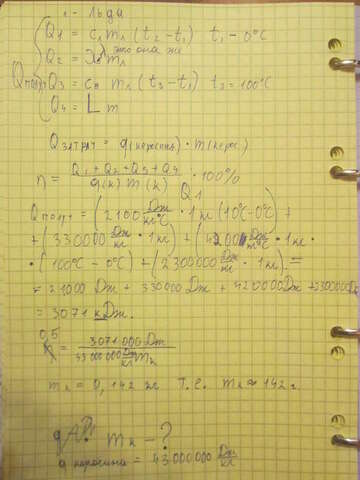 - льда
Q1 = c1 mл (t2 - t1)  t1 - 0°C
Q2 = λ mл
Qполуч Q3 = cв mл (t3 - t1)  t2 = 100°C
Q4 = L m
Qзатрач = q(керосина) · m(керос.)
η = Q1 + Q2 + Q3 + Q4 / q(k) m(k) · 100%
Q1
Qполуч = (2100 Дж/кг°C · 1 кг (10°C - 0°C) +
+ (330000 Дж/кг · 1 кг) + (4200 Дж/кг°C · 1 кг ·
· (100°C - 0°C) + (2300000 Дж/кг · 1 кг) =
= 21000 Дж + 330000 Дж + 420000 Дж + 2300000 Дж
= 3071 кДж.
0,5 = 3071000 Дж / 43000000 Дж/кг mк
mк = 0,142 кг  т.е. mк ≈ 142 г.
mк - ?
q керосина = 43000000 Дж/кг